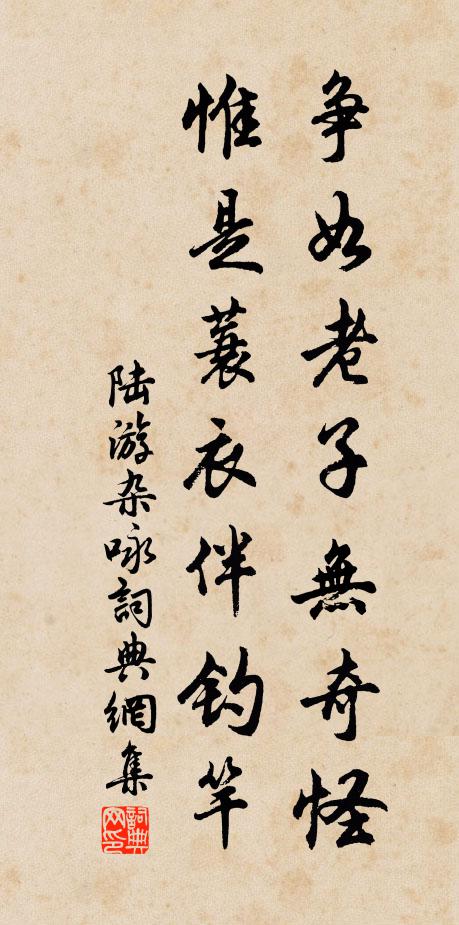 争如老子無奇怪
惟是蓑衣伴钓竿
陆游杂咏詞典網集
詞典网印